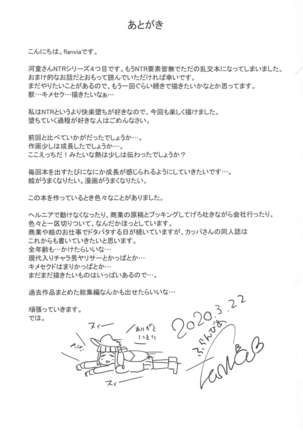 あとがき
こんにちは。flanviaです。
河童さんNTRシリーズ4つ目です。もうNTR要素皆無でただの乱交本になってしまいました。
おまけ的なお話だとおもって読んでいただければ幸いです。
まだやりたいことがあるので、もう一回くらい続きで描きたいかなとか思ってます。
獣…キメセク…描きたいなぁ…
私はNTRというより快楽堕ちが好きなので、今回も楽しく描けました。
堕ちていく過程が好きな人はごめんなさい。
前回と比べていかがだったでしょうか…。
作画少しは成長したでしょうか…。
ここえっちだ！みたいな熱は少しは伝わったでしょうか？
毎回本を出すたびになにか成長が感じられるようにしていきたいです…。
絵がうまくなりたい。漫画がうまくなりたい。
この本を作っているとき色々なことがありました。
ヘルニアで動けなくなったり、商業の原稿とブッキングしてげろ吐きながら会社行ったり、
色々と一区切りついて、なんだかほっとしています。
商業や絵のお仕事でドタバタする日が続いていますが、カッパさんの同人誌は
これからも書いていきたいと思います。
全年齢も…かけたらいいな…
現代入りチャラ男ヤリサーとかっぱとか…
キメセクドはまりかっぱとか…
まだまだ描きたいものはいっぱいあるので…。
過去作品まとめた総集編なんかも出せたらいいな…
頑張っていきます。
では。
2020.3.22
ありがと